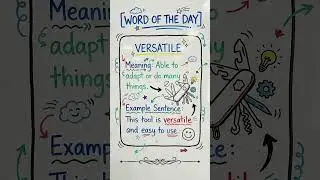 [WORD OF THE DAY]
VERSATILE
Meaning: Able to
adapt or do many
things.
Example Sentence:
This tool is versatile
and easy to use.
Meaning
adapt
things.
Example
This tool
ntence:
versatile
use.